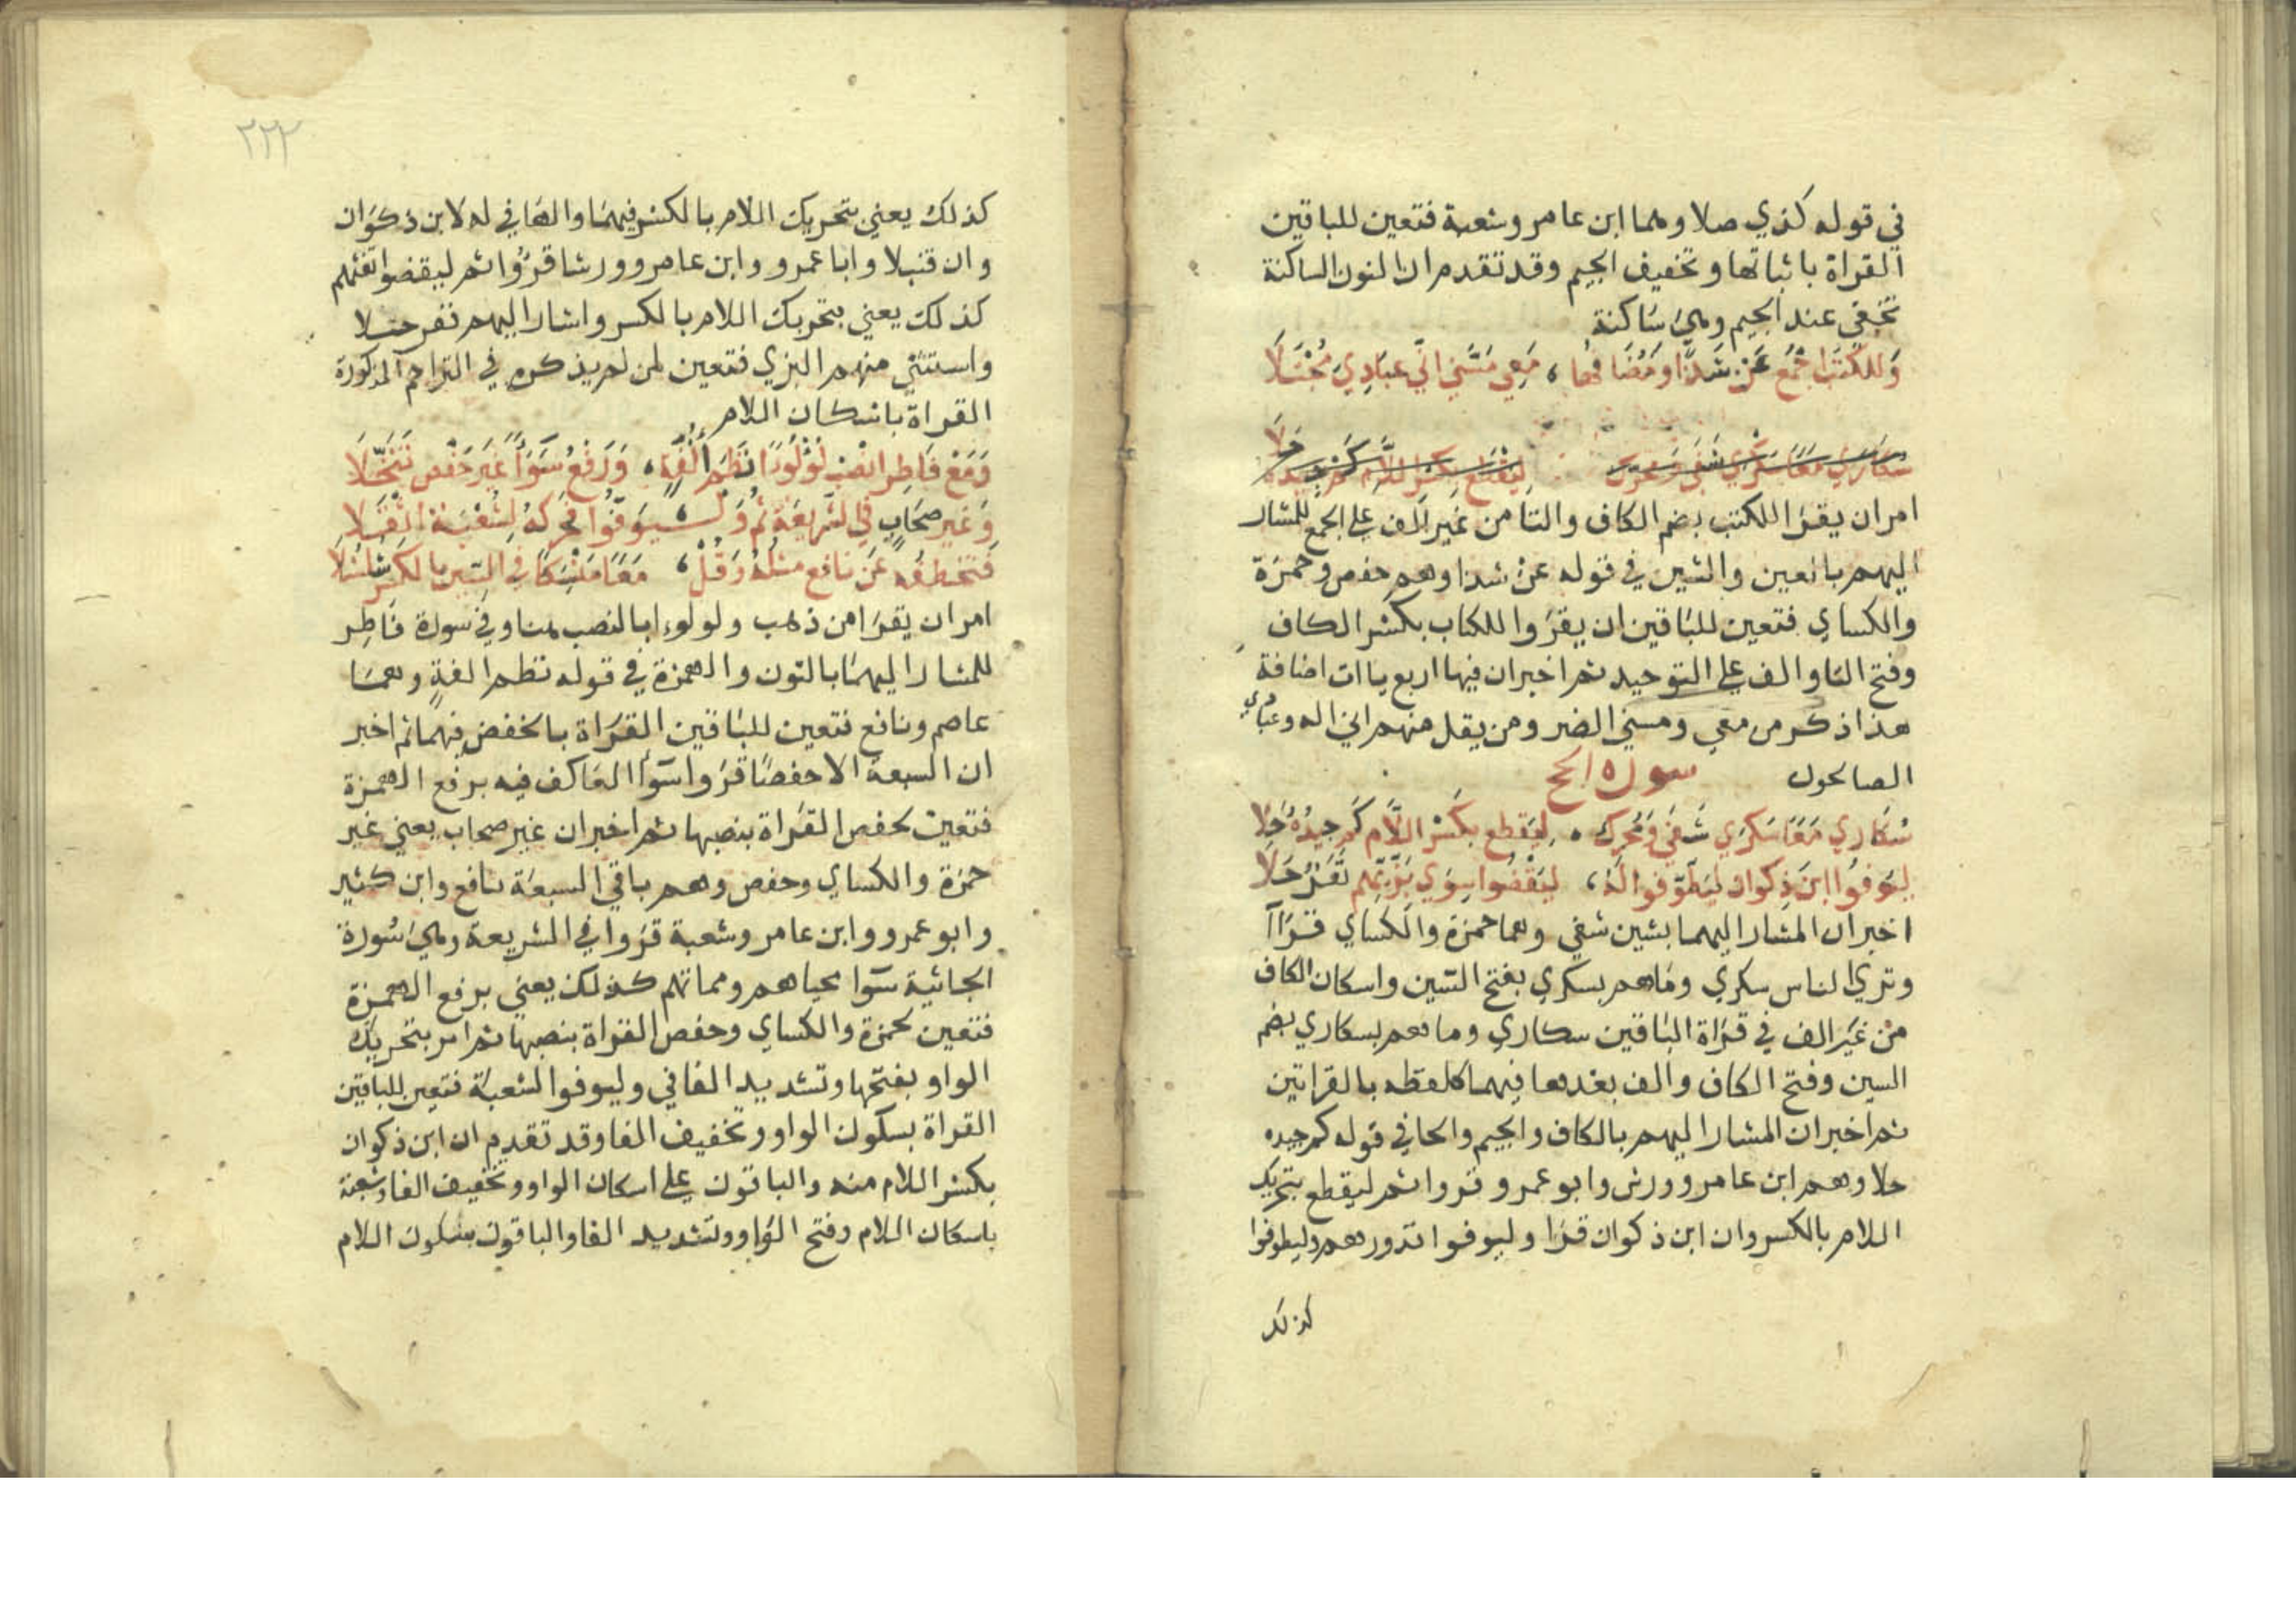 في قوله كذي صلا وهما ابن عامر وشعبة فتعين للباقين
القراة باثباتها وتخفيف الجيم وقد تقدم ان النون الساكنة
تخفى عند الجيم وهي ساكنة
وَللكُتب اجْمَع عَنْ شَذًا وَمُضَافهَا ، مَعِي مَسَّنِي اِنّي عِبَادِي مُجْتَلَا
سكاري مَعًا سَكْري شفى ومحرك ليقطع بكسر اللام كم جيده حلا
امر ان يقرا للكتب بضم الكاف والتا من غير الف على الجمع للمشار
اليهم بالعين والشين في قوله عن شذا وهم حفص وحمزة
والكساي فتعين للباقين ان يقروا للكتاب بكسر الكاف
وفتح التا والف على التوحيد ثم اخبر ان فيها اربع يا ات اضافة
هذا ذكر من معي ومسني الضر ومن يقل منهم اني اله وعبادي
الصالحون سورة الحج
سُكَارَي مَعًا سَكْرَي شَفَى وَمُحَرك ، لِيَقطع بكَسْر اللَّام كَم جِيدُهُ حَلا
لِيُوفُوا ابنَ ذكوان لِيَطّوّفوا لَهُ ، لِيَقْضُوا سِوَي بَزِّيِّهِم نَفَرٌ حَلَا
اخبر ان المشار اليهما بشين شفي وهما حمزة والكساي قراا
وتري الناس سكري وماهم بسكري بفتح السين واسكان الكاف
من غير الف في قراة الباقين سكاري وما هم بسكاري بضم
السين وفتح الكاف والف بعدها فيهما كلفظه بالقراتين
ثم اخبر ان المشار اليهم بالكاف والجيم والحا في قوله كم جيده
حلا وهم ابن عامر وورش وابو عمرو قروا ثم ليقطع بتحريك
اللام بالكسر وان ابن ذكوان قرا وليوفوا نذورهم وليطوفوا
كذلك
٢٢٢
كذلك يعني بتحريك اللام بالكسر فيهما والها في له لابن ذكوان
وان قنبلا وابا عمرو وابن عامر وورشا قرؤا ثم ليقضوا تفثهم
كذلك يعني بتحريك اللام بالكسر واشار اليهم نفر حلا
واستثني منهم البزي فتعين لمن لم يذكره في التراجم المذكورة
القراة باسكان اللام
وَمَعْ فَاطِرٍ انصب لُؤْلُؤًا نَظْمُ أُلْفَةٍ ، وَرَفْعُ سَوَاءً غَيرَ حَفْصٍ تَنَخَّلَا
وَغَير صحَابٍ فِي الشَّرِيعَة ثُمّ وَلْ ، يُوَفُّوا فَحَرِّكهُ لِشُعْبَةَ اثْقَلَا
فَتَخْطَفُهُ عَن نافع مثلهُ وَقُلْ ، مَعًا مَنْسِكًا فِي السّين بالكَسْرِ شُلْشُلَا
امر ان يقرا من ذهب ولولوءا بالنصب هنا وفي سورة فاطر
للمشار اليهما بالنون والهمزة في قوله نظم الفة وهما
عاصم ونافع فتعين للباقين القراة بالخفض فيهما ثم اخبر
ان السبعة الا حفصا قروا سوأ العاكف فيه برفع الهمزة
فتعين لحفص القراة بنصبها ثم اخبر ان غير صحاب يعني غير
حمزة والكساي وحفص وهم باقي السبعة نافع وابن كثير
وابو عمرو وابن عامر وشعبة قروا في الشريعة وهي سورة
الجاثية سوآ محياهم ومماتهم كذلك يعني برفع الهمزة
فتعين لحمزة والكساي وحفص القراة بنصبها ثم امر بتحريك
الواو بفتحها وتشديد الفا في وليوفوا لشعبة فتعين للباقين
القراة بسكون الواو وتخفيف الفا وقد تقدم ان ابن ذكوان
بكسر اللام منه والباقون على اسكان الواو وتخفيف الفا وشعبة
باسكان اللام وفتح الواو وتشديد الفا والباقون بسكون اللام